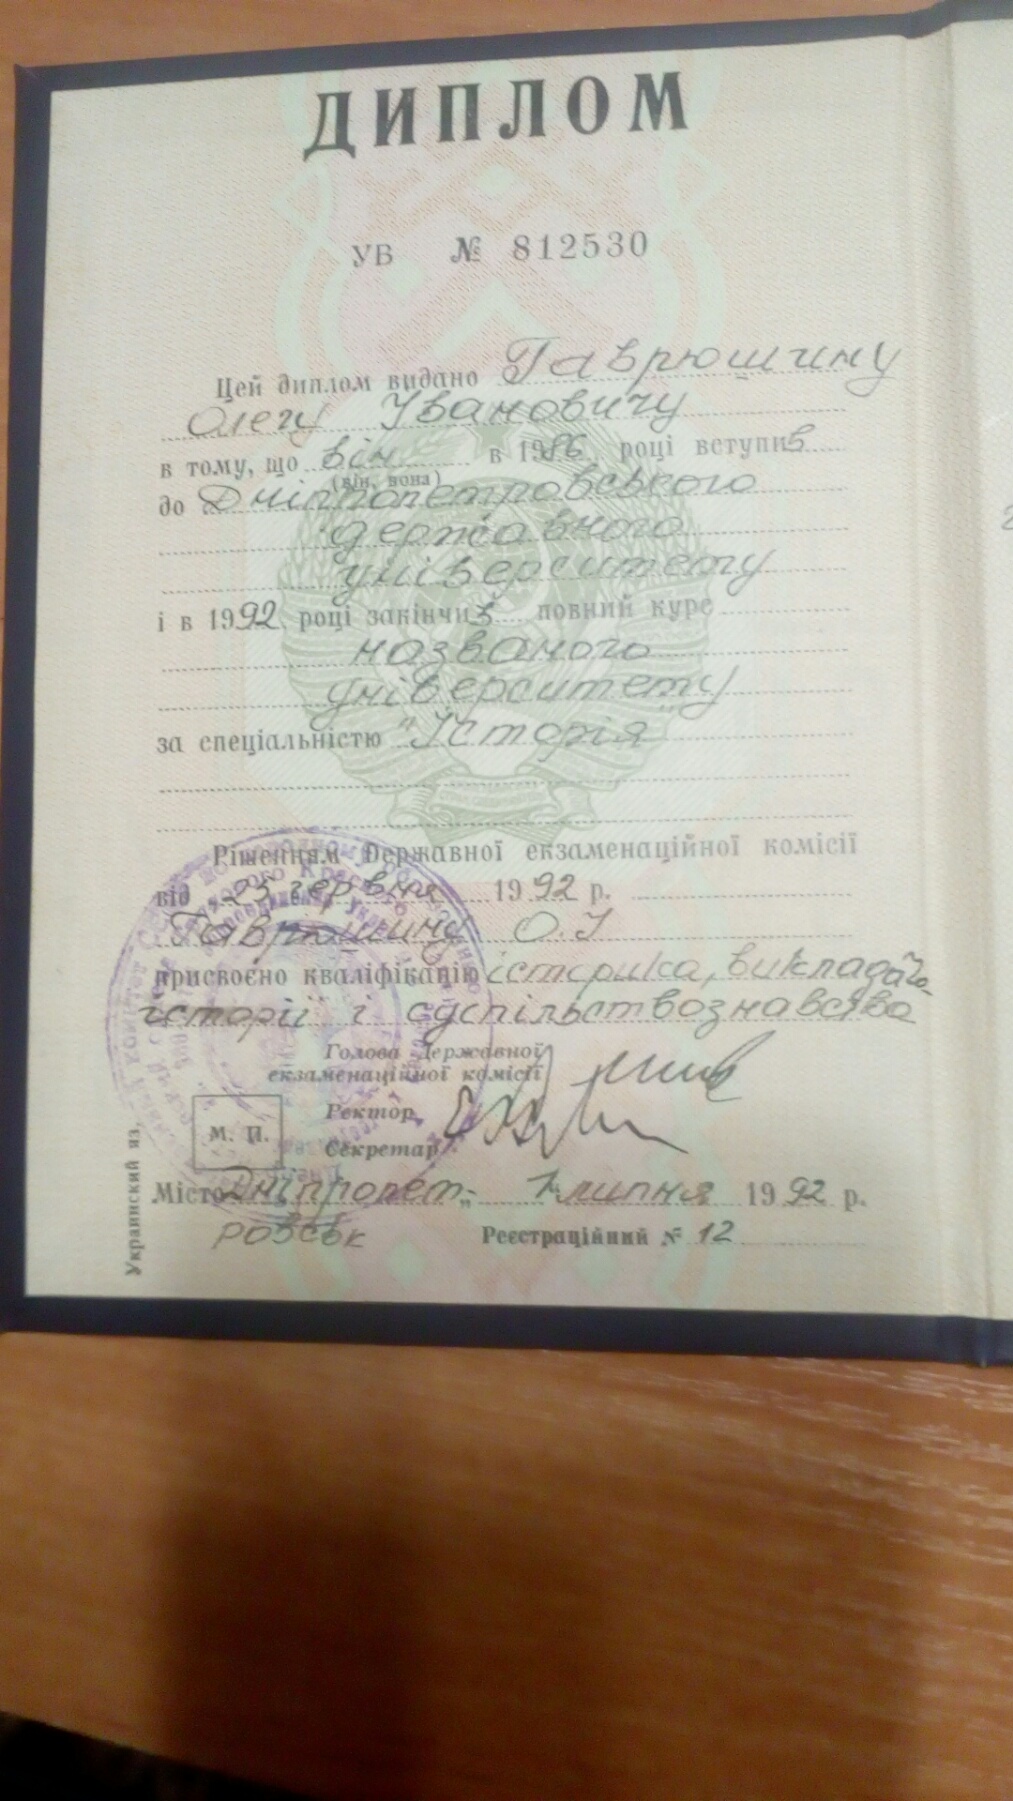 ДИПЛОМ
УВ № 812530
Цей диплом видано Гаврюшину
Олегу Івановичу
в тому, що він в 1986 році вступив
(він, вона)
до Дніпропетровського
державного
університету
і в 1992 році закінчив повний курс
названого
університету
за спеціальністю "Історія"
Рішенням Державної екзаменаційної комісії
від 25 червня 1992 р.
Гаврюшину О.І
присвоєно кваліфікацію історика, викладача
історії і суспільствознавства
Голова Державної
екзаменаційної комісії
Ректор
М. П.
Секретар
Місто Дніпропет- 1 липня 1992 р.
ровськ Реєстраційний № 12
Украинский яз.